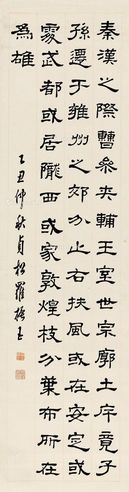 秦漢之際曹參夾輔王室世宗廓土斥竟子
孫遷于雍州之郊分止右扶風或在安定或
處武都或居隴西或家敦煌枝分葉布所在
為雄
乙丑仲秋貞松羅振玉